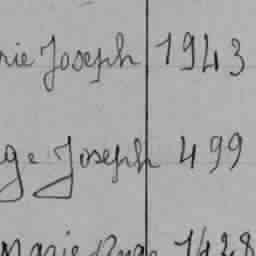 rie Joseph 1943
ge Joseph 499
Marie 1428